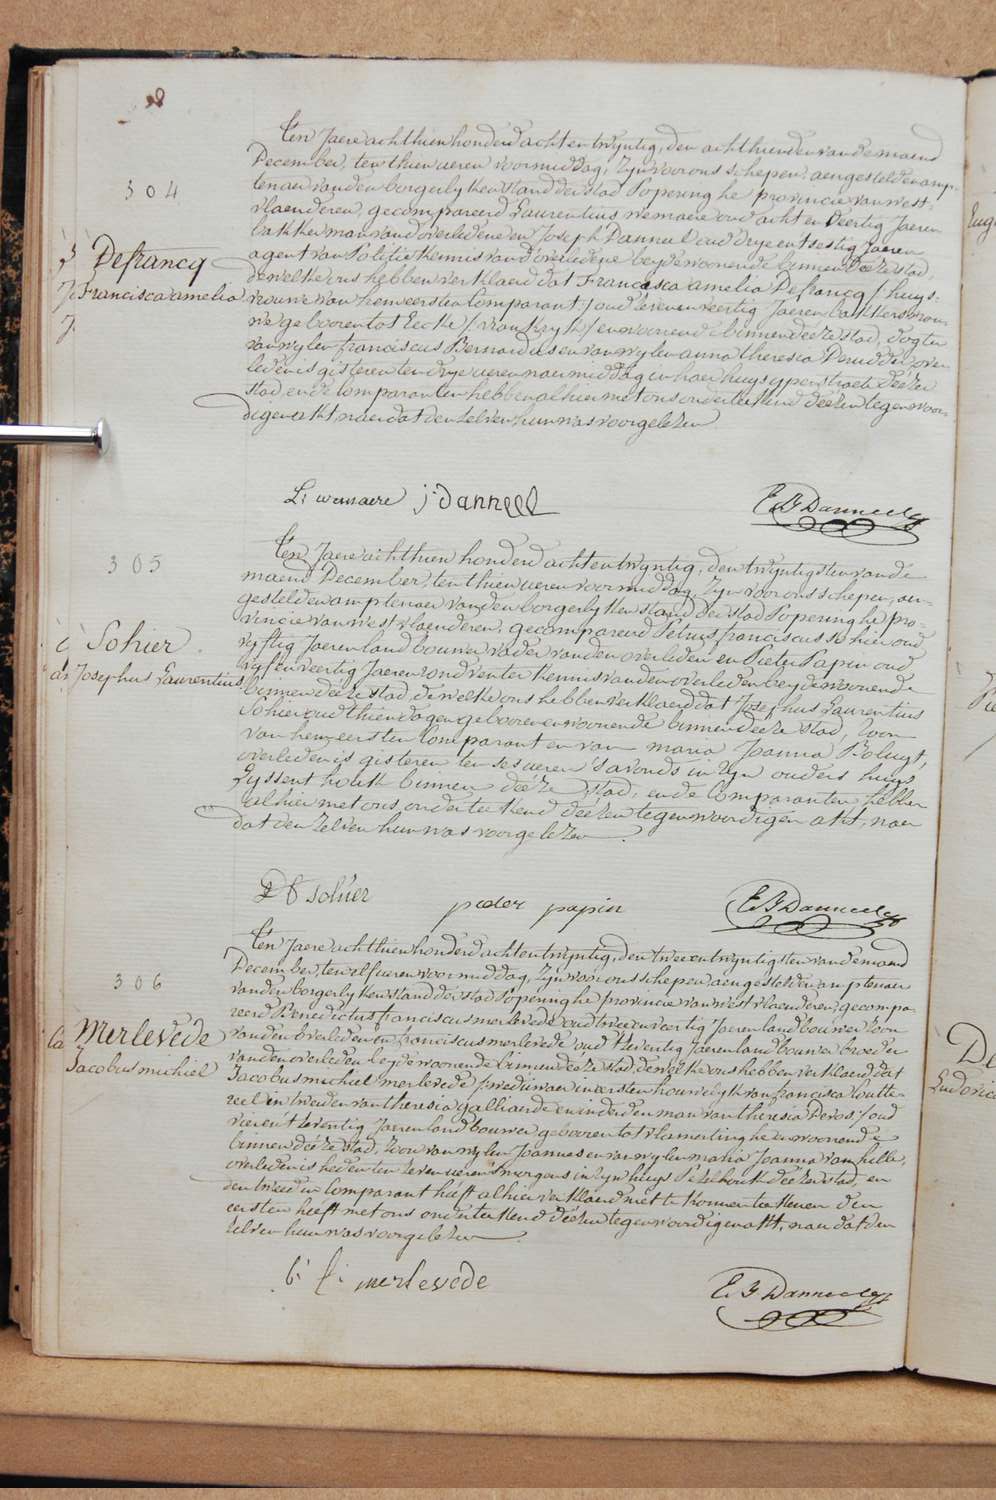 304
Defrancq
Francisca amelia
Ten Jaere achthien honderd achtentwyntig, den achthienden van de maend
December, ten thien ueren voormiddag, Zyn voor ons schepen, aengestelden amp-
tenaer van den borgerlyken stand der stad Poperinghe provincie van west-
vlaenderen, gecompareerd Laurentius wemaere oud acht en veertig Jaeren
bakker man van d'overledene en Joseph Danneel oud drye en tsestig Jaeren
agent van Politie kennis van d'overledene beyde woonende binnen deéze stad,
dewelke ons hebben verklaerd dat Francesca amelia Defrancq / huys-
vrouwe van hem eersten Comparant / oud zeven en veertig Jaeren bakkers vrou-
we gebooren tot Eecke / vrankryk / en woonende binnen deéze stad, dogter
van wylen franciscus Bernardus en van wylen anna theresia Denudder over-
leden is gisteren ten drye ueren naermiddag in haer huys yperstraete deézer
stad, en de Comparanten hebben alhier met ons onderteekend deézen tegenwoor-
digen akt naer dat den zelven hun was voorgelezen
L: wemaere j: Danneel
E. J. Danneel
305
Sohier
Josephus Laurentius
Ten Jaere achthien honderd achtentwyntig, den twyntigsten van de
maend December, ten thien ueren voormiddag, Zyn voor ons schepen, aen-
gestelden amptenaer van den borgerlyken stand der stad Poperinghe pro-
vincie van west vlaenderen, gecompareerd Petrus franciscus sohier oud
vyftig Jaeren landbouwer vader van den overleden en Pieter Papin oud
vyf en veertig Jaeren rondventer kennis van den overleden beyde woonende
binnen deéze stad, dewelke ons hebben verklaerd dat Josephus Laurentius
Sohier oud thien dagen gebooren en woonende binnen deéze stad, zoon
van hem eersten Comparant en van maria Joanna Boluyt,
overleden is gisteren ten ses ueren 's avonds in zyn ouders huys
Lyssenthouk binnen deéze stad, en de Comparanten hebben
alhier met ons onderteekend deézen tegenwoordigen akt, naer
dat den zelven hun was voorgelezen
sohier peeter papin
E. J. Danneel
306
Merlevede
Jacobus michiel
Ten Jaere achthien honderd achtentwyntig, den tweeentwyntigsten van de maend
December, ten elf ueren voormiddag, Zyn voor ons schepen aengestelden amptenaer
van den borgerlyken stand der stad Poperinghe provincie van west vlaenderen, gecompa-
reerd Benedictus franciscus merlevede oud twee en veertig Jaeren landbouwer zoon
van den overleden en franciscus merlevede oud tzeventig Jaeren landbouwer broeder
van den overleden beyde woonende binnen deéze stad, dewelke ons hebben verklaerd dat
Jacobus michiel merlevede / weduwaer in eersten houwelyk van francisca
in tweeden van theresia galliaerde en in derden man van theresia Devos / oud
vier en tzeventig Jaeren landbouwer gebooren tot vlamertinghe en woonende
binnen deéze stad, zoon van wylen Joannes en van wylen maria Joanna van hille,
overleden is heden ten zeven ueren 's morgens in zyn huys Pezelhouk deézer stad, en
den tweeden Comparant heéft alhier verklaerd niet te konnen teekenen den
eersten heeft met ons onderteekend deézen tegenwoordigen akt, naer dat den
zelven hun was voorgelezen
b: f: merlevede
E. J. Danneel